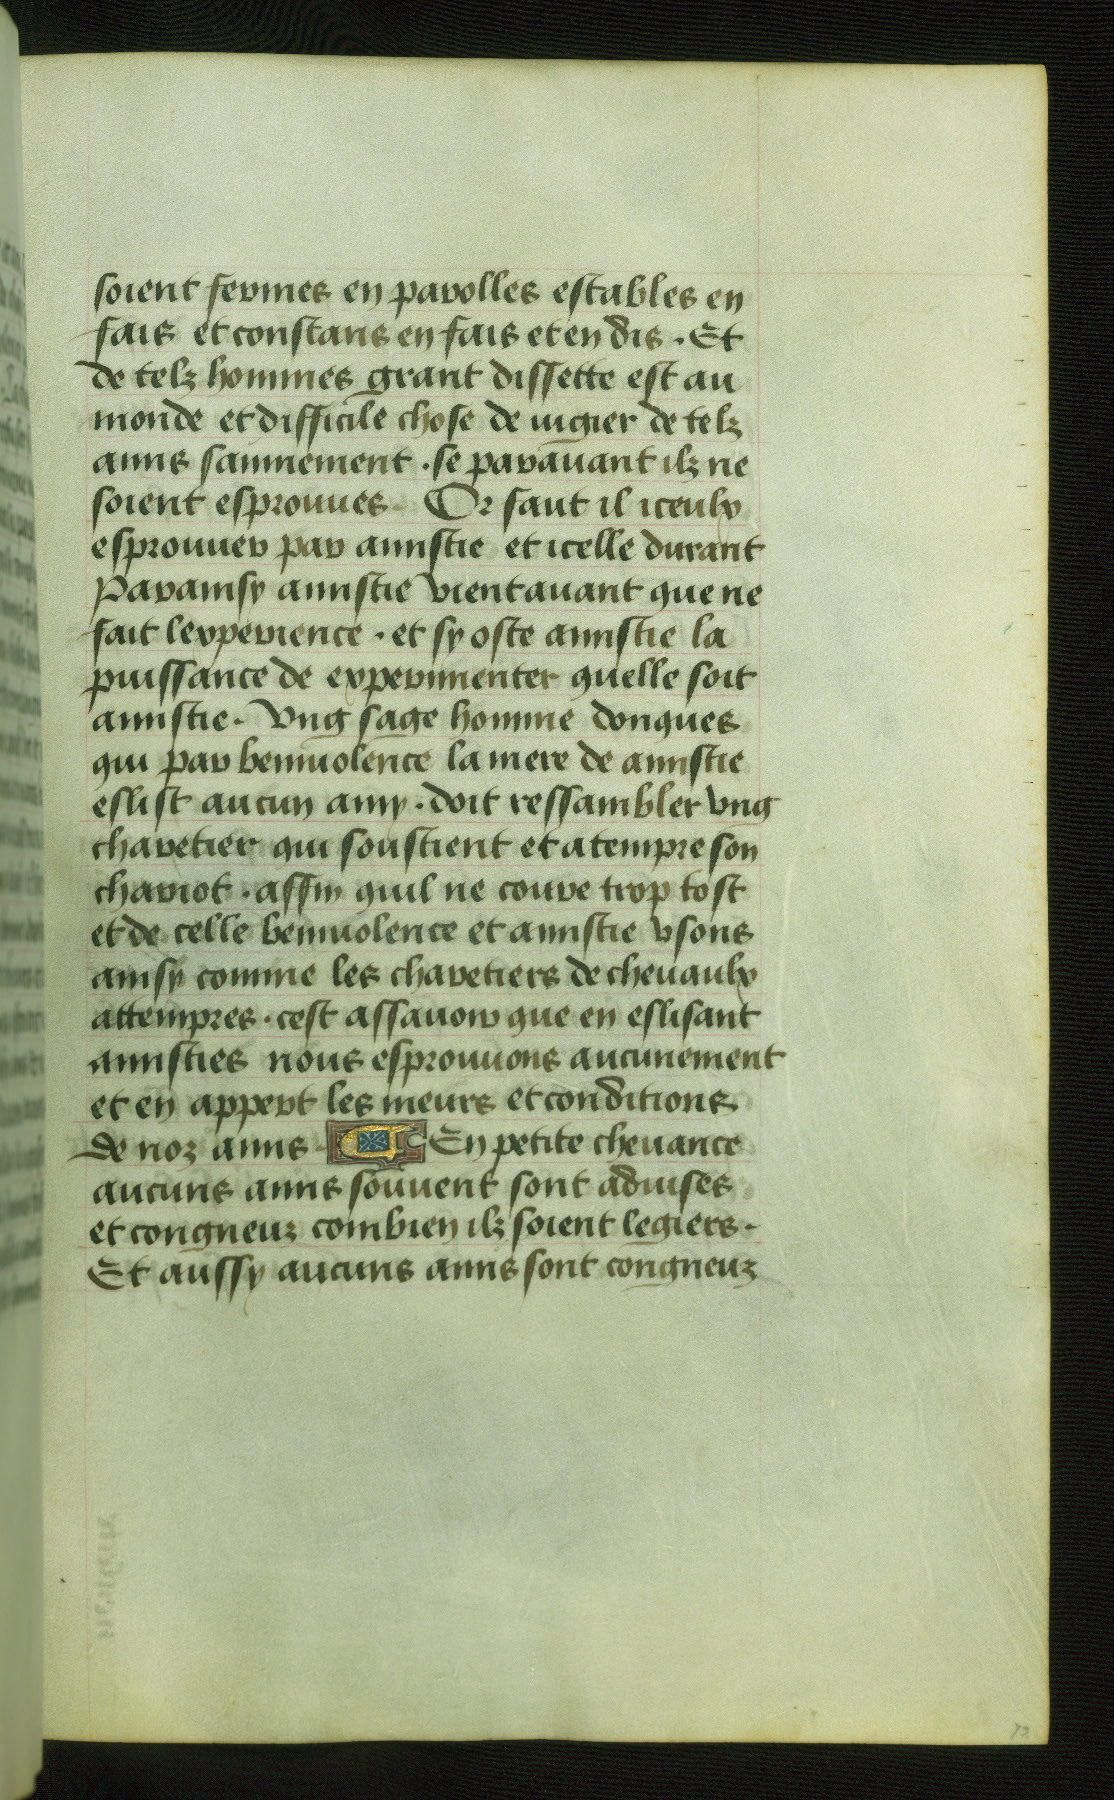 soient fermes en parolles estables en
fais et constans en fais et en dis · Et
de telz hommes grant dissette est au
monde et difficile chose de iugier de telz
amis sainnement · se parauant ilz ne
soient esprouues · Or faut il iceulx
esprouuer par amistie et icelle durant
Par ainsy amistie vient auant que ne
fait lexperience · et sy oste amistie la
puissance de experimenter quelle soit
amistie · Vng sage homme donques
qui par beniuolence la mere de amistie
eslist aucun amy · doit ressambler vng
charetier qui soustient et atempre son
chariot · affin quil ne coure trop tost
et de celle beniuolence et amistie vsons
ainsy comme les charetiers de cheuaulx
attempres · cest assauoir que en eslisant
amisties nous esprouuons aucunement
et en appert les meurs et conditions
de noz amis · En petite cheuance
aucuns amis souuent sont aduises
et congneuz combien ilz soient legiers ·
Et aussy aucuns amis sont congneuz
72